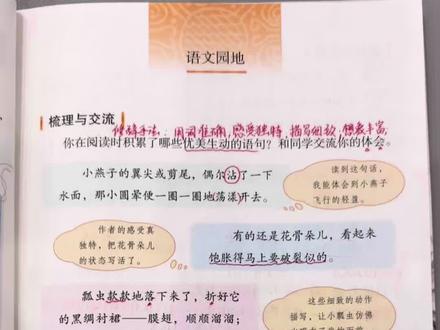 语文园地
梳理与交流
修辞手法、用词准确,感受独特,描写细致,想象丰富,
你在阅读时积累了哪些优美生动的语句?和同学交流你的体会。
小燕子的翼尖或剪尾,偶尔沾了一下
水面,那小圆晕便一圈一圈地荡漾开去。
读到这句话,
我能体会到小燕子
飞行的轻盈。
作者的感受真
独特,把花骨朵儿
的状态写活了。
有的还是花骨朵儿,看起来
饱胀得马上要破裂似的。
瓢虫款款地落下来了,折好它
的黑绸衬裙——膜翅,顺顺溜溜;
这些细致的动作
描写,让小瓢虫仿佛